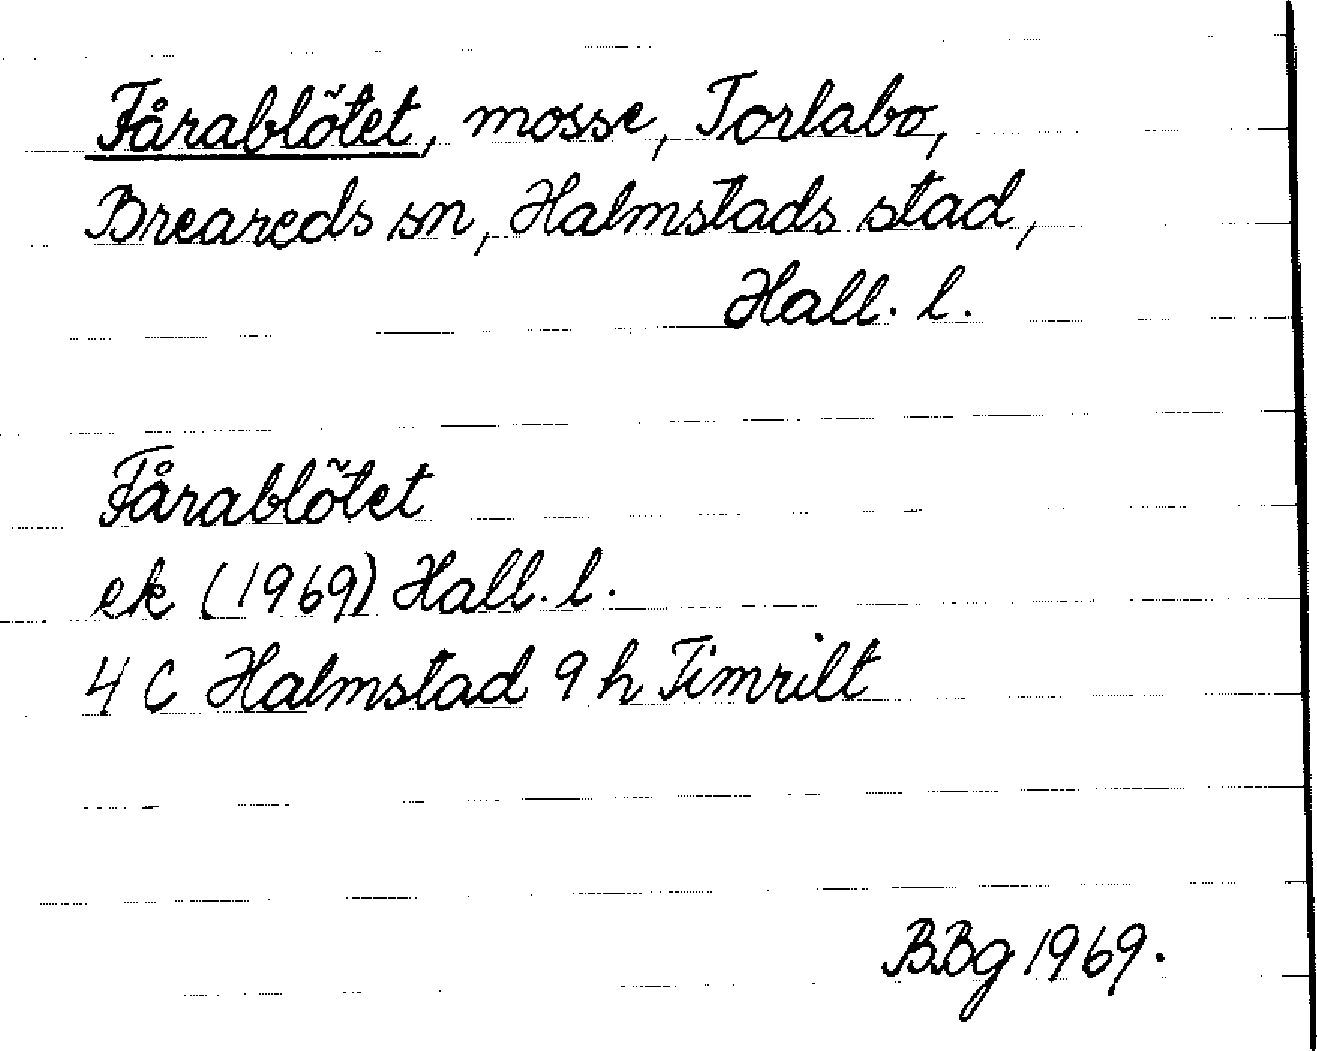 Fårablötet, mosse, Torlabo,
Breareds sn, Halmstads stad,
Hall. l.
Fårablötet
ek (1969) Hall. l.
4 C Halmstad 9 h Timrilt
BBg 1969.